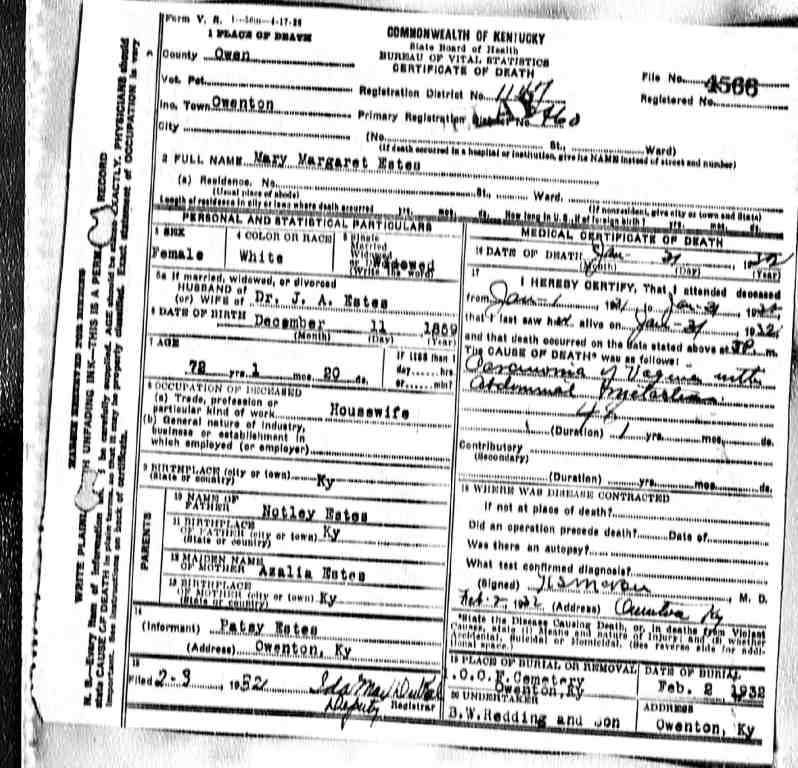 Form V. S. 1-50m-4-17-28
COMMONWEALTH OF KENTUCKY
State Board of Health
BUREAU OF VITAL STATISTICS
CERTIFICATE OF DEATH
1 PLACE OF DEATH
County Owen
Vot. Pct.
Inc. Town Owenton
City
File No. 4566
Registered No.
Registration District No. 1147
Primary Registration District No.
(No. St., Ward)
(If death occurred in a hospital or institution, give its NAME instead of street and number)
2 FULL NAME Mary Margaret Estes
(a) Residence. No. St., Ward.
(Usual place of abode) (If nonresident, give city or town and State)
Length of residence in city or town where death occurred yrs. mos. ds. How long in U. S., if of foreign birth? yrs. mos. ds.
PERSONAL AND STATISTICAL PARTICULARS
3 SEX
Female
4 COLOR OR RACE
White
5 Single
Married
Widowed
(Write the word)
5a If married, widowed, or divorced
HUSBAND of
(or) WIFE of Dr. J. A. Estes
6 DATE OF BIRTH December 11 1859
(Month) (Day) (Year)
7 AGE
72 yrs. 1 mos. 20 ds.
If LESS than 1
day......hrs
or......min?
8 OCCUPATION OF DECEASED
(a) Trade, profession or
particular kind of work Housewife
(b) General nature of industry,
business or establishment in
which employed (or employer)
9 BIRTHPLACE (city or town)
(State or country) Ky
PARENTS
10 NAME OF
FATHER Notley Estes
11 BIRTHPLACE
OF FATHER (city or town) Ky
(State or country)
12 MAIDEN NAME
OF MOTHER Azalia Estes
13 BIRTHPLACE
OF MOTHER (city or town) Ky
(State or country)
14
(Informant) Patsy Estes
(Address) Owenton, Ky
15
Filed 2-3, 1932
Deputy Registrar
MEDICAL CERTIFICATE OF DEATH
16 DATE OF DEATH Jan- 31, 1932
(Month) (Day) (Year)
17
I HEREBY CERTIFY, That I attended deceased
from Jan-1, 1931 to Jan-31, 1932
that I last saw her alive on Jan-31, 1932
and that death occurred on the date stated above at P. m.
The CAUSE OF DEATH* was as follows:
Carcinoma of Vagina with
Abdominal
48
(Duration) 1 yrs. mos. ds.
Contributory
(Secondary)
(Duration) yrs. mos. ds.
18 WHERE WAS DISEASE CONTRACTED
If not at place of death?
Did an operation precede death? Date of
Was there an autopsy?
What test confirmed diagnosis?
(Signed) M. D.
Feb-2 1932 (Address) Owenton Ky
*State the Disease Causing Death, or, in deaths from Violent
Causes, state (1) Means and nature of Injury; and (2) whether
Accidental, Suicidal or Homicidal. (See reverse side for addi-
tional space.)
19 PLACE OF BURIAL OR REMOVAL
I.O.O.F. Cemetery
Owenton, Ky
DATE OF BURIAL
Feb. 2 1932
20 UNDERTAKER
B.W. Redding and Son
ADDRESS
Owenton, Ky
MARGIN RESERVED FOR BINDING
WRITE PLAINLY WITH UNFADING INK—THIS IS A PERMANENT RECORD
N. B.—Every item of information should be carefully supplied. AGE should be stated EXACTLY. PHYSICIANS should
state CAUSE OF DEATH in plain terms, so that it may be properly classified. Exact statement of OCCUPATION is very
important. See instructions on back of certificate.